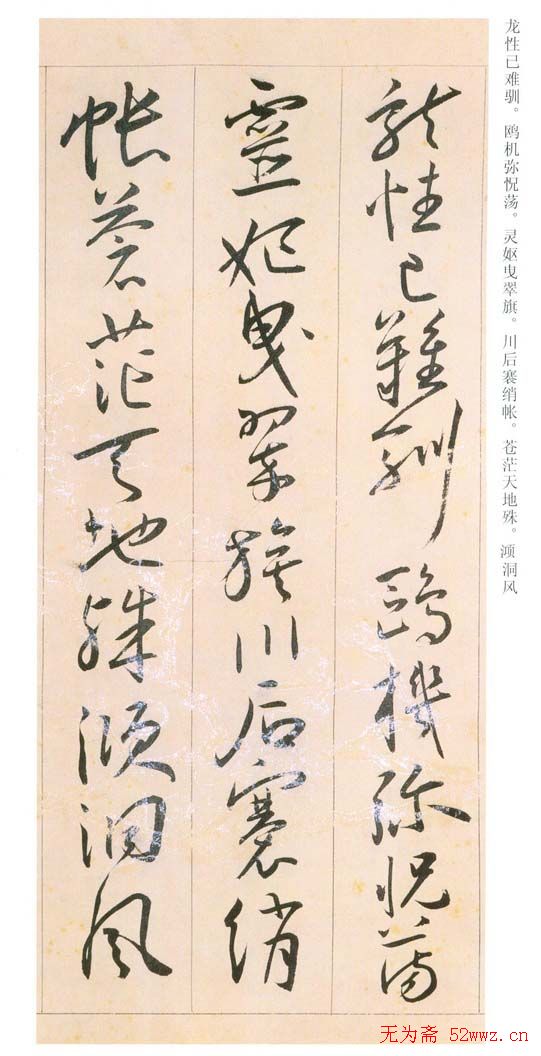 龍性已難馴鷗機弥怳蕩
靈妃曳翠旗川后褰绡
帳蒼茫天地殊澒洞風
龙性已难驯。鸥机弥怳荡。灵妪曳翠旗。川后褰绡帐。苍茫天地殊。澒洞风
无为斋 52wwz.cn